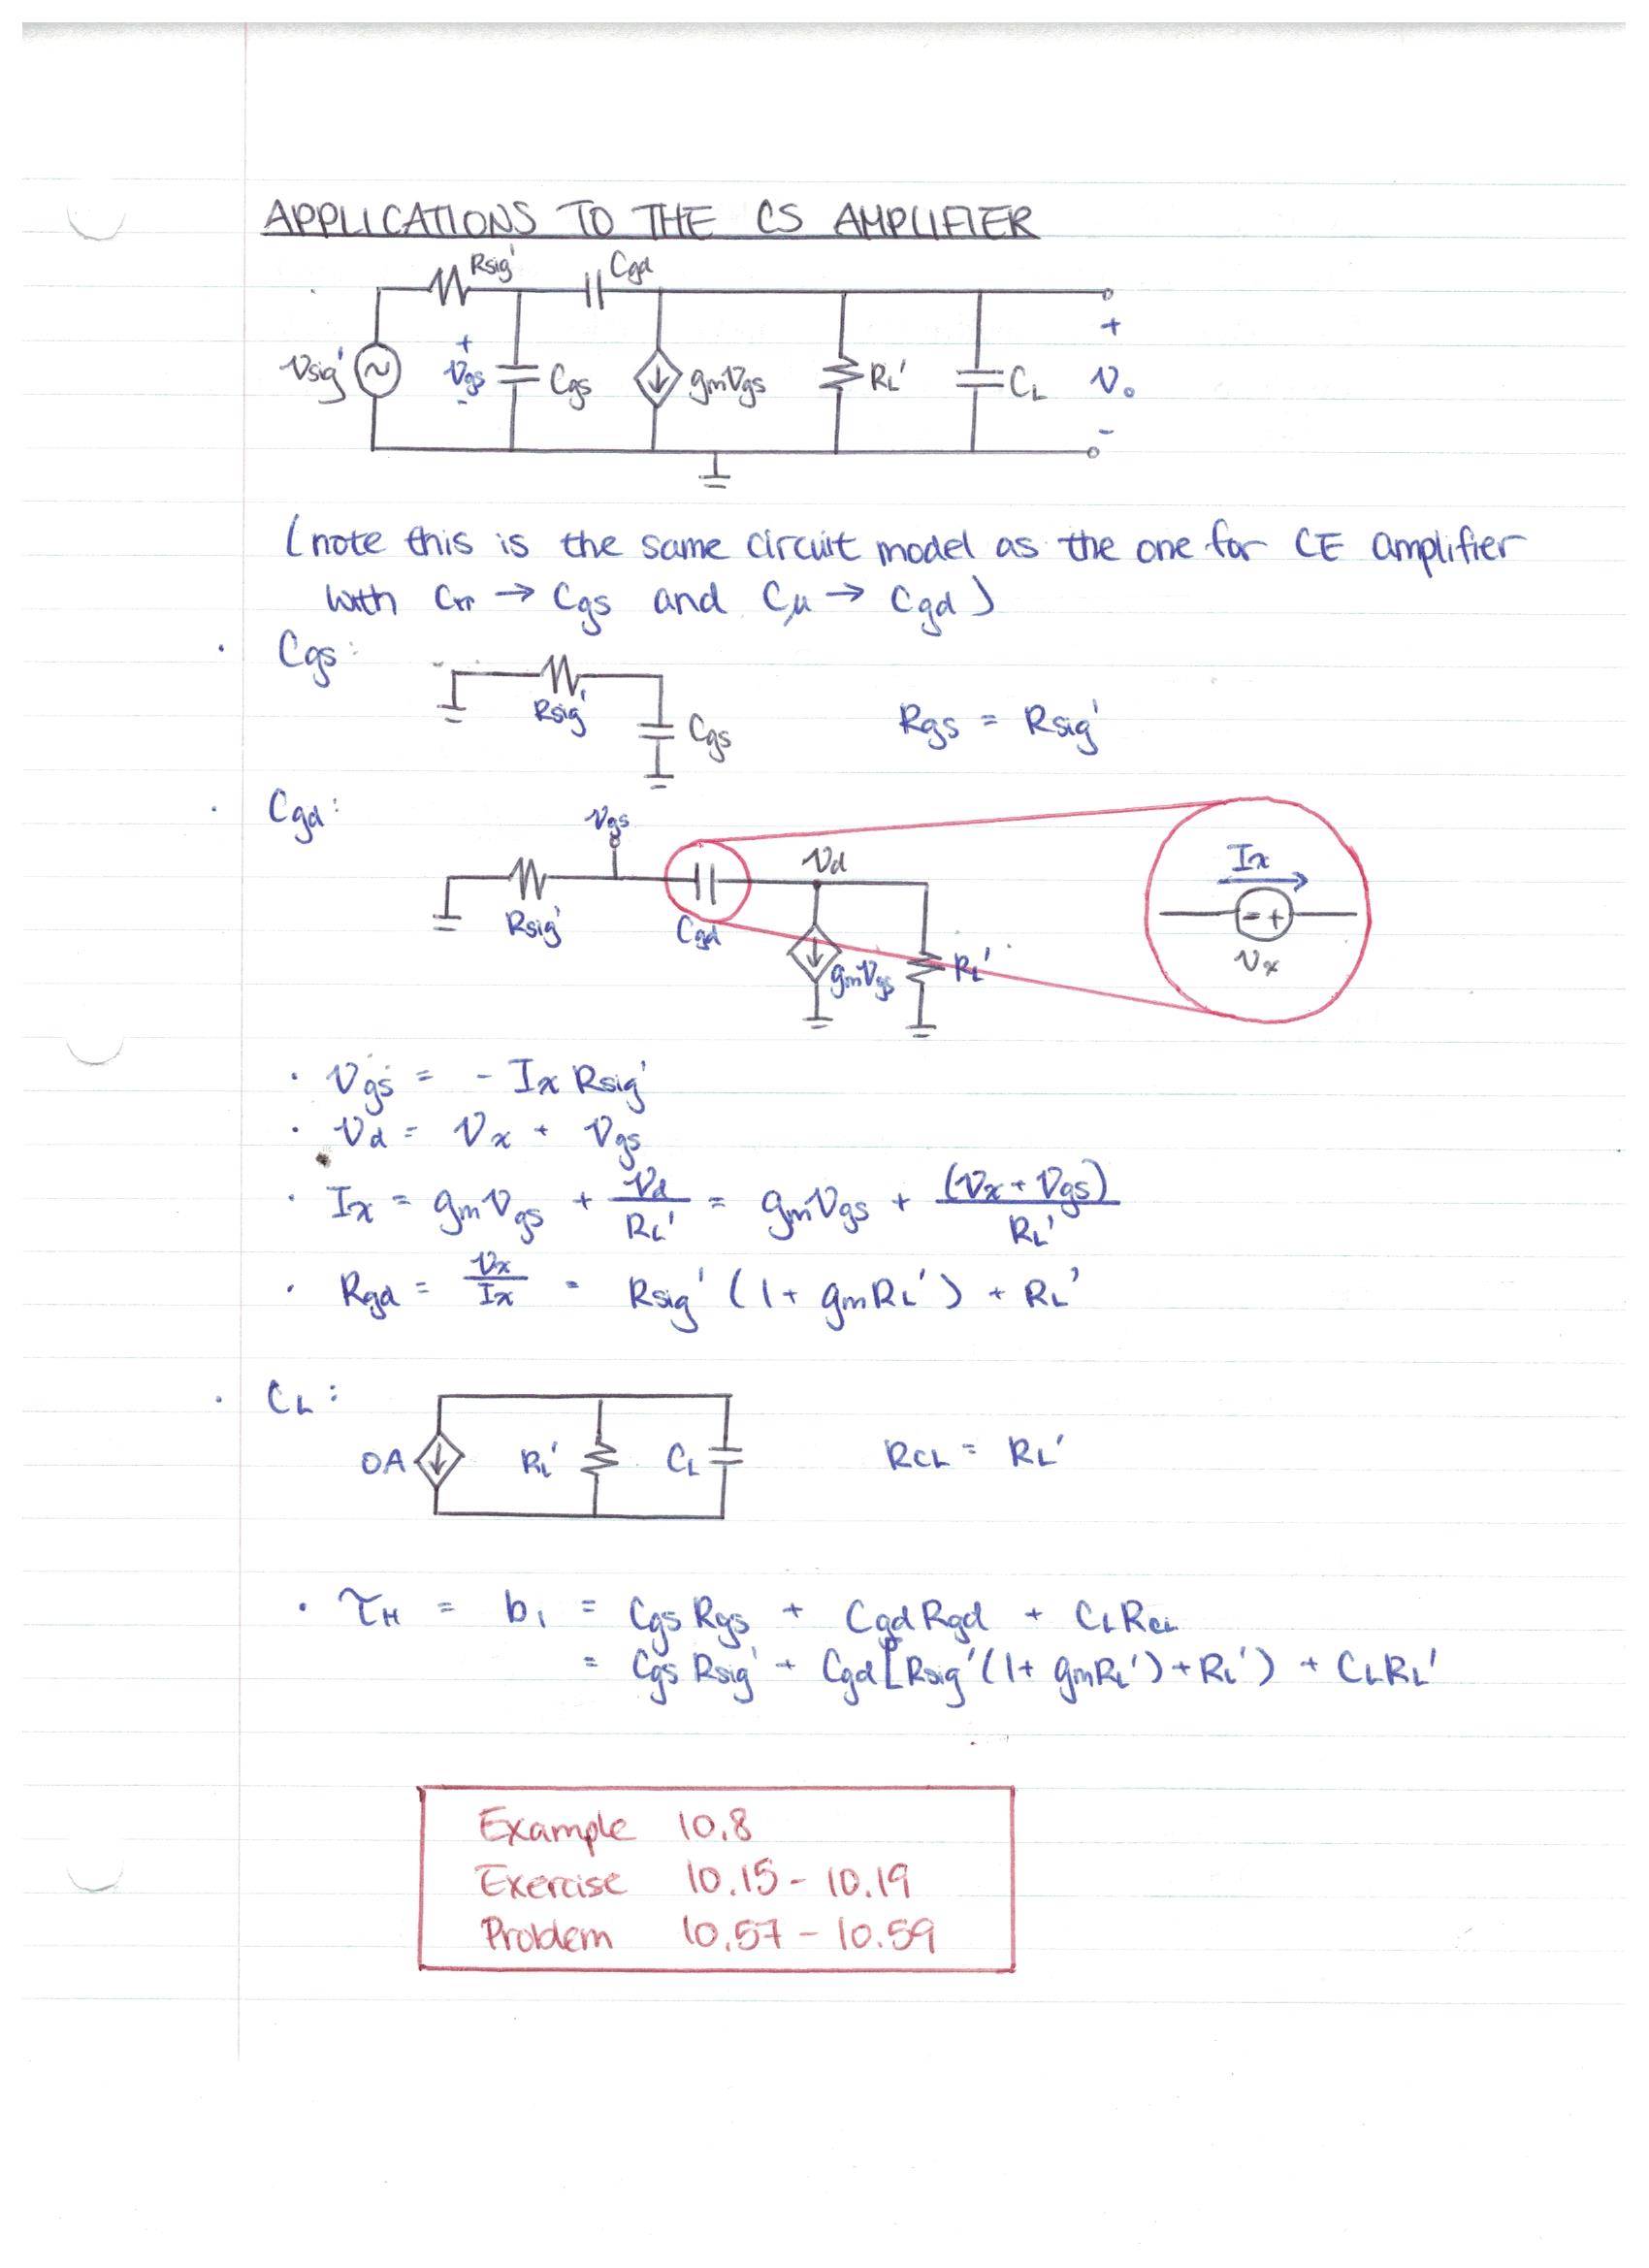 APPLICATIONS TO THE CS AMPLIFIER
Rsig' Cgd
Vsig' + Vgs - Cgs gmVgs RL' CL + Vo -
(note this is the same circuit model as the one for CE amplifier
with Cπ → Cgs and Cμ → Cgd)
· Cgs:
Rsig' Cgs Rgs = Rsig'
· Cgd:
Vgs Vd Ix
Rsig' Cgd gmVgs RL' - + Vx
· Vgs = - Ix Rsig'
· Vd = Vx + Vgs
· Ix = gmVgs + Vd/RL' = gmVgs + (Vx + Vgs)/RL'
· Rgd = Vx/Ix = Rsig' (1 + gmRL') + RL'
· CL:
0A RL' CL RCL = RL'
· τH = b1 = Cgs Rgs + Cgd Rgd + CL RCL
= Cgs Rsig' + Cgd [Rsig' (1 + gmRL') + RL') + CLRL'
Example 10.8
Exercise 10.15 - 10.19
Problem 10.57 - 10.59